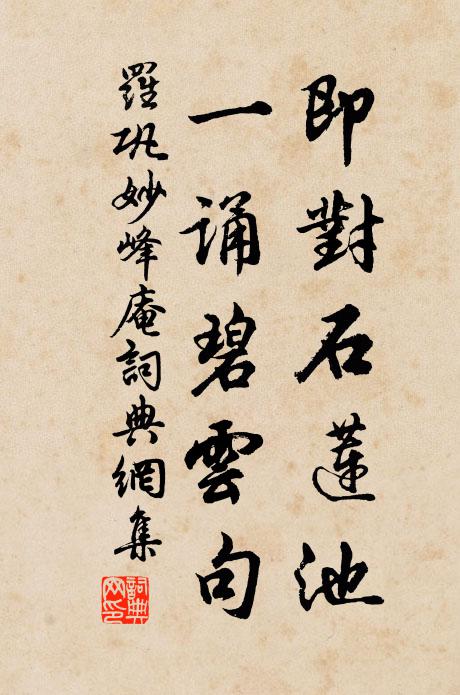 即對石蓮池
一誦碧雲句
羅巩妙峰庵詞典網集
詞典网印